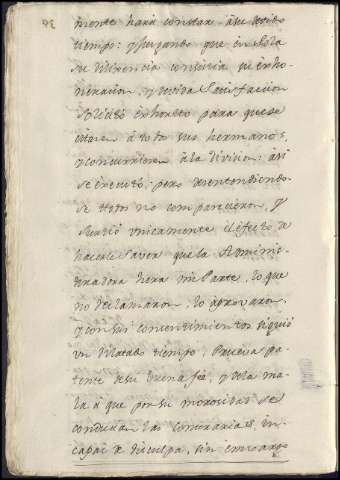 mente hara constar á su devido
tiempo: y Juzgando que en sola
su diligencia consistia su exho-
neracion, y devida satisfaccion
libró exhorto para que se
citase á todos sus hermanos,
y concurriesen á la division: asi
se executó; pero desentendiendo-
se todos no comparecieron, y
sirvió unicamente el efecto de
hacerle saver que la Adminis-
tradora hera mi Parte, lo que
no reclamaron, lo aprovaron,
y con sus consentimientos siguió
un dilatado tiempo; Prueva pa-
tente de su buena feé, y de la ma-
la á que por su morosidad se
conducian las contrarias, in-
capaz de disculpa, sin embargo